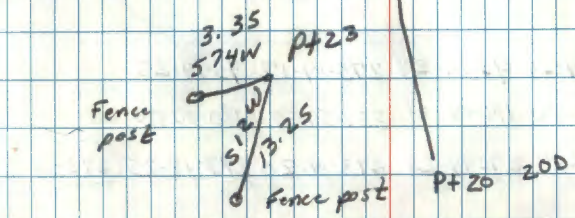 3.35
S74W
Pt 23
Fence
post
S12W
13.25
Fence post
Pt 20 200